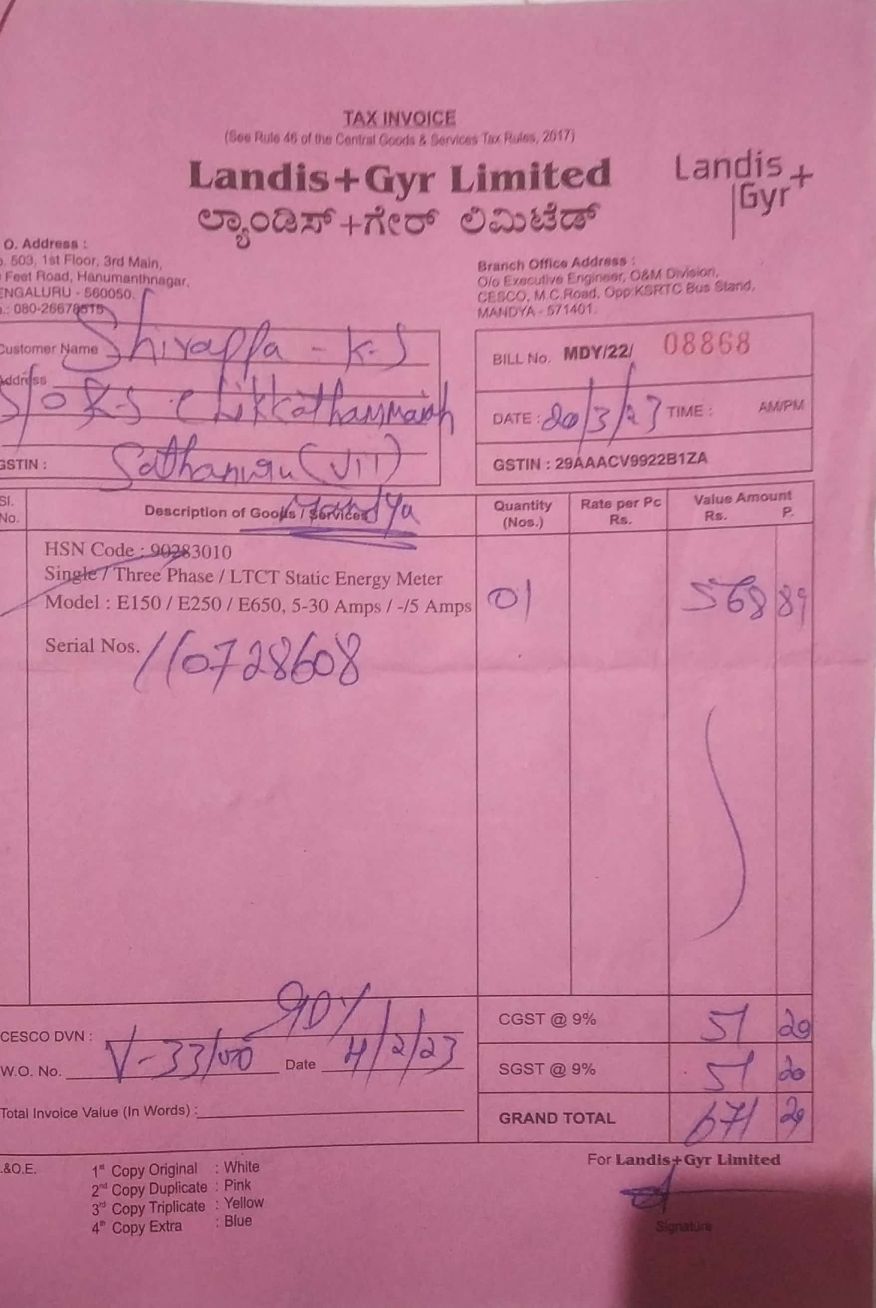 TAX INVOICE
(See Rule 46 of the Central Goods & Services Tax Rules, 2017)
Landis+Gyr Limited
ಲ್ಯಾಂಡಿಸ್+ಗೇರ್ ಲಿಮಿಟೆಡ್
Landis+
Gyr
O. Address :
503, 1st Floor, 3rd Main,
Feet Road, Hanumanthnagar,
ENGALURU - 560050.
080-26678515
Branch Office Address :
O/o Executive Engineer, O&M Division,
CESCO, M.C.Road, Opp.KSRTC Bus Stand,
MANDYA - 571401.
Customer Name Shivappa - K-S
Address S/o K-S
GSTIN : Sathanuru (VII)
Mandya
BILL No. MDY/22/ 08868
DATE : 20/3/23 TIME : AM/PM
GSTIN : 29AAACV9922B1ZA
Sl. No. Description of Goods / Services Quantity (Nos.) Rate per Pc Rs. Value Amount Rs. P.
HSN Code : 90283010
Single / Three Phase / LTCT Static Energy Meter
Model : E150 / E250 / E650, 5-30 Amps / -/5 Amps 01 568 89
Serial Nos. 110728608
CESCO DVN : CGST @ 9% 51 20
W.O. No. Date 4/2/23 SGST @ 9% 51 20
Total Invoice Value (In Words) : GRAND TOTAL 671 29
.&O.E.
1st Copy Original : White
2nd Copy Duplicate : Pink
3rd Copy Triplicate : Yellow
4th Copy Extra : Blue
For Landis+Gyr Limited
Signature